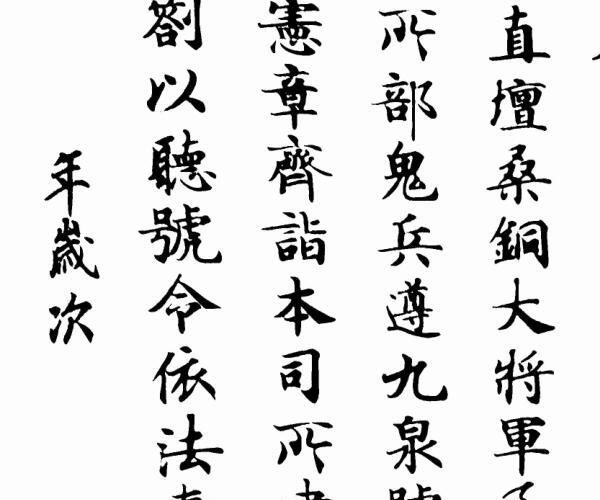 直壇桑銅大將軍
所部鬼兵遵九泉號
憲章齊詣本司所
劄以聽號令依法
年歲次